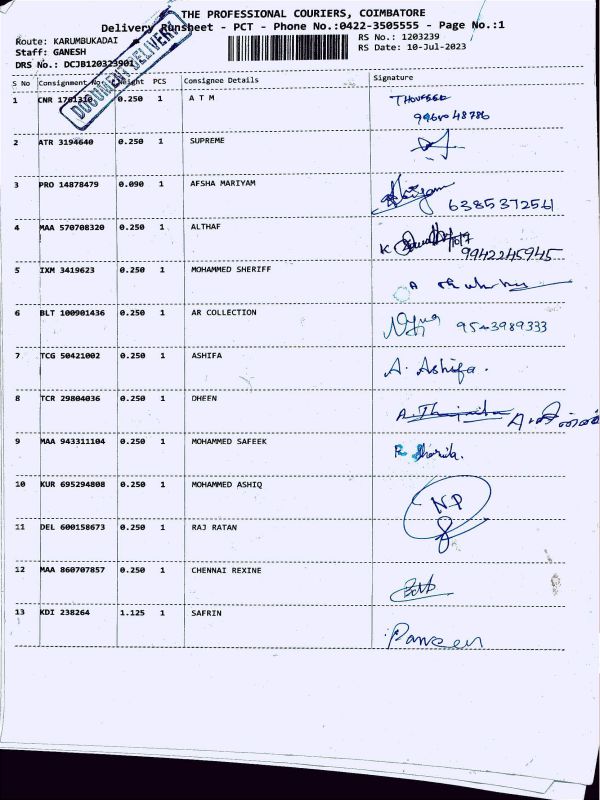 THE PROFESSIONAL COURIERS, COIMBATORE
Delivery Runsheet - PCT - Phone No.:0422-3505555 - Page No.:1
Route: KARUMBUKADAI
Staff: GANESH
DRS No.: DCJB120323901
RS No.: 1203239
RS Date: 10-Jul-2023
DOCUMENT DELIVERY
S No Consignment No. Weight PCS Consignee Details Signature
1 CNR 0.250 1 A T M
2 ATR 3194640 0.250 1 SUPREME
3 PRO 14878479 0.090 1 AFSHA MARIYAM 6385372561
4 MAA 570708320 0.250 1 ALTHAF 9942245945
5 IXM 3419623 0.250 1 MOHAMMED SHERIFF
6 BLT 100901436 0.250 1 AR COLLECTION 9543989333
7 TCG 50421002 0.250 1 ASHIFA A. Ashifa.
8 TCR 29804036 0.250 1 DHEEN
9 MAA 943311104 0.250 1 MOHAMMED SAFEEK R
10 KUR 695294808 0.250 1 MOHAMMED ASHIQ N.P
11 DEL 600158673 0.250 1 RAJ RATAN
12 MAA 860707857 0.250 1 CHENNAI REXINE
13 KDI 238264 1.125 1 SAFRIN